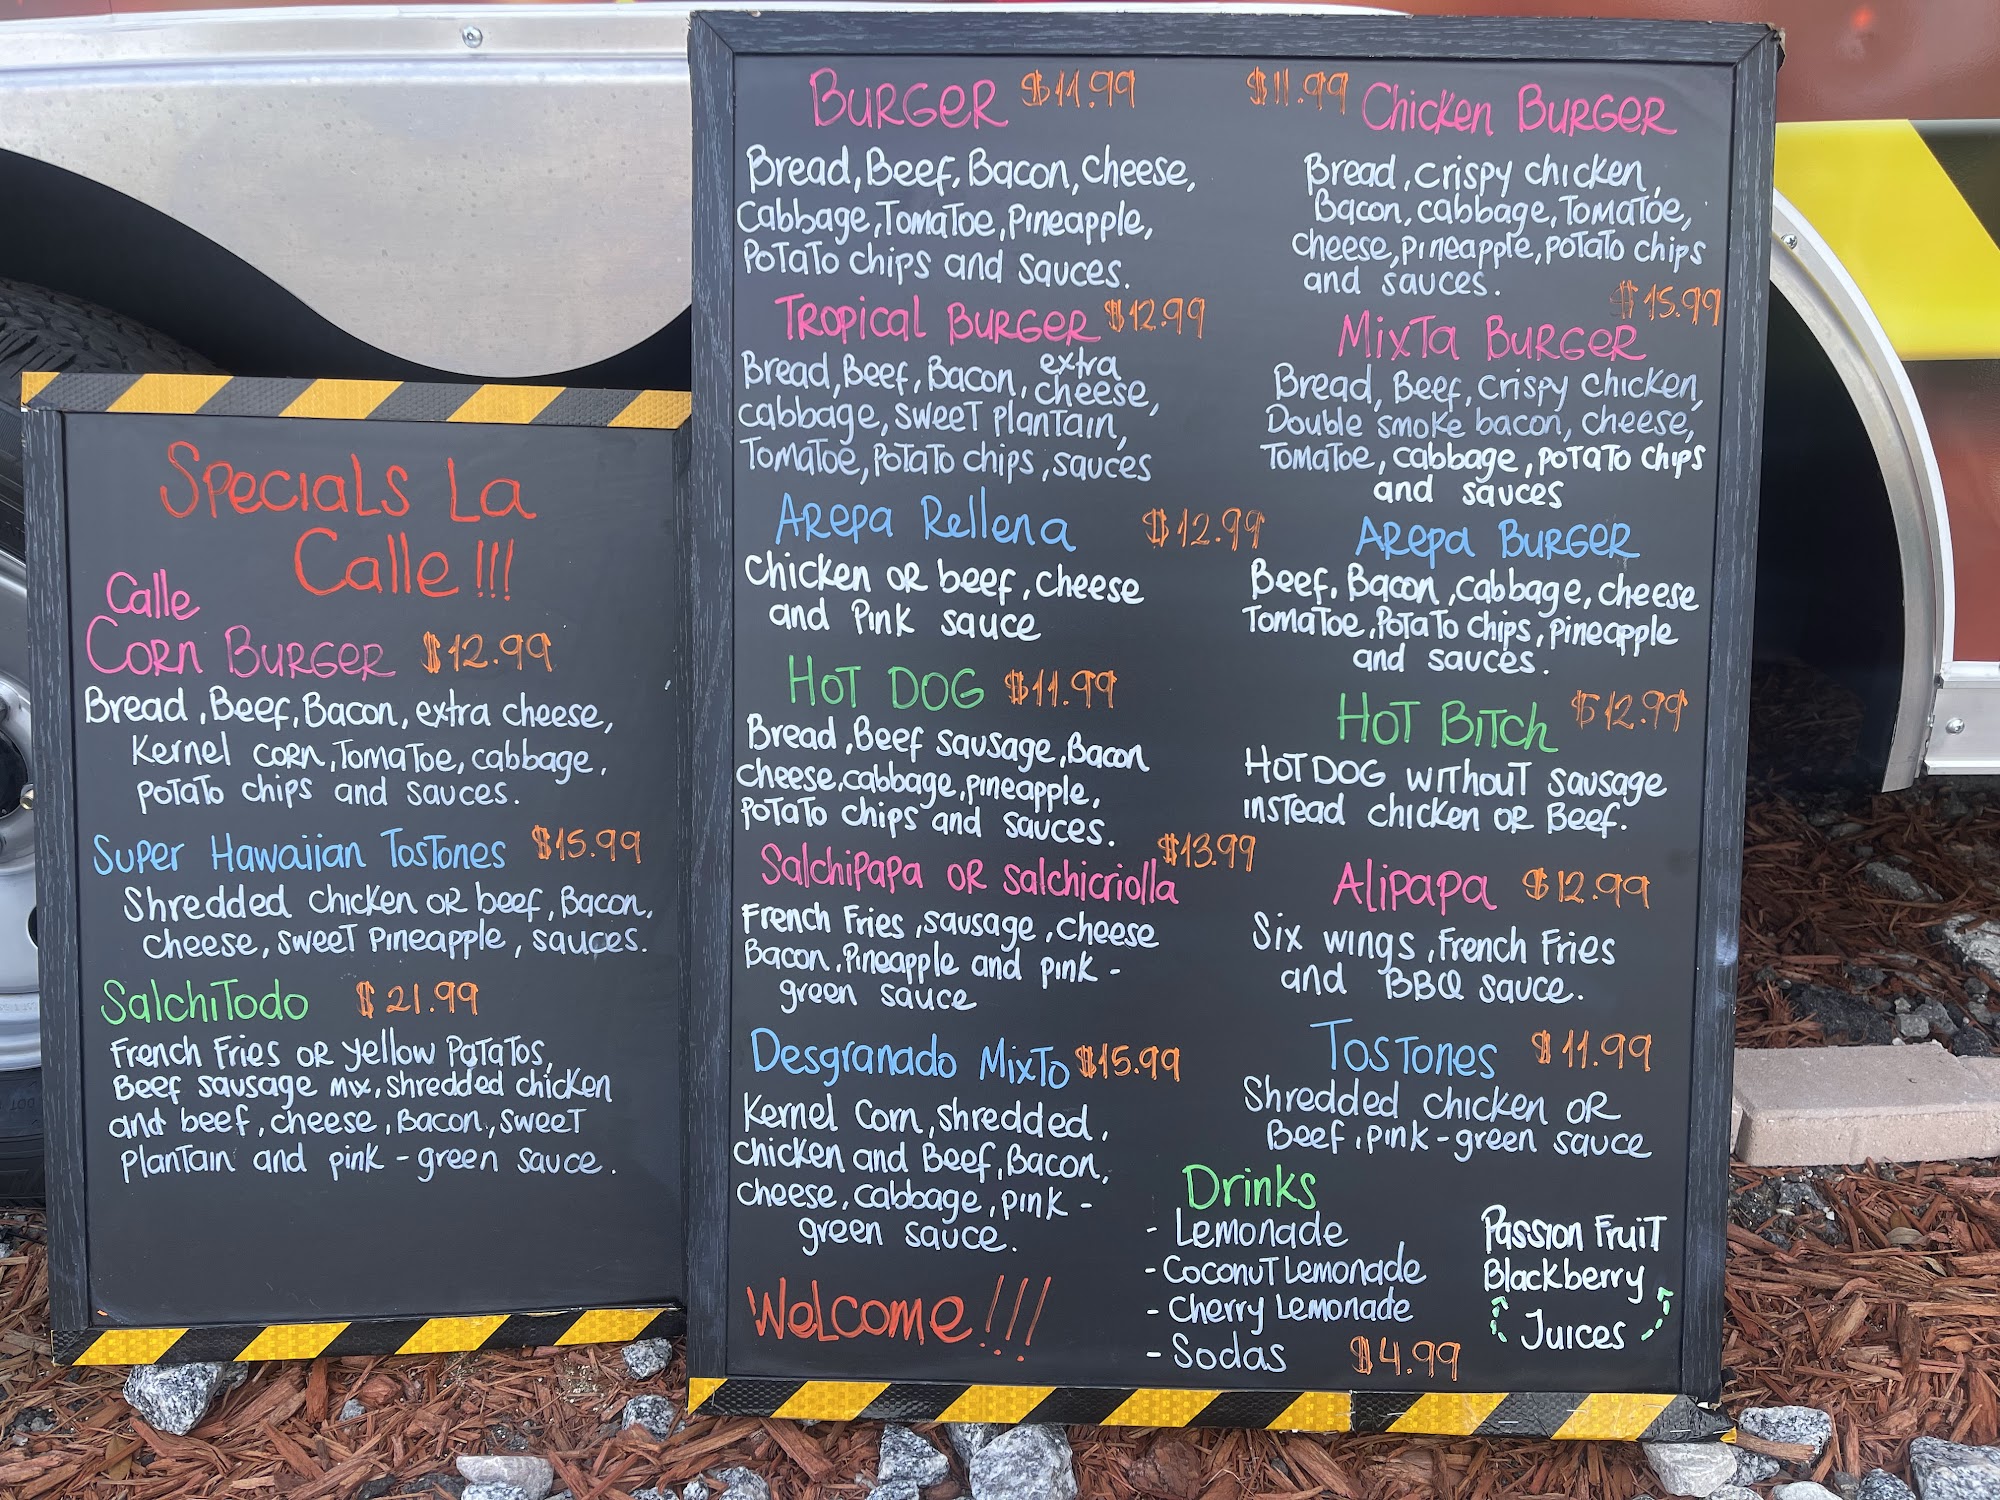 Specials La
Calle!!!
Calle
Corn Burger $12.99
Bread, Beef, Bacon, extra cheese,
Kernel corn, Tomatoe, cabbage,
potato chips and sauces.
Super Hawaiian Tostones $15.99
Shredded chicken or beef, Bacon,
cheese, sweet pineapple, sauces.
Salchitodo $21.99
French Fries or yellow Patatos,
Beef sausage mix, shredded chicken
and beef, cheese, Bacon, sweet
plantain and pink-green sauce.
Burger $11.99
Bread, Beef, Bacon, cheese,
Cabbage, Tomatoe, Pineapple,
Potato chips and sauces.
Tropical Burger $12.99
Bread, Beef, Bacon, extra cheese,
cabbage, sweet plantain,
Tomatoe, Potato chips, sauces
Arepa Rellena $12.99
Chicken or beef, cheese
and Pink sauce
Hot Dog $11.99
Bread, Beef sausage, Bacon
cheese, cabbage, pineapple,
Potato chips and sauces.
Salchipapa or salchicriolla $13.99
French Fries, sausage, cheese
Bacon, Pineapple and pink-
green sauce
Desgranado Mixto $15.99
Kernel Corn, shredded,
chicken and Beef, Bacon,
cheese, cabbage, pink-
green sauce.
Welcome!!!
$11.99 Chicken Burger
Bread, crispy chicken,
Bacon, cabbage, Tomatoe,
cheese, pineapple, potato chips
and sauces.
$15.99
Mixta Burger
Bread, Beef, crispy chicken,
Double smoke bacon, cheese,
Tomatoe, cabbage, potato chips
and sauces
Arepa Burger
Beef, Bacon, cabbage, cheese
Tomatoe, Potato chips, pineapple
and sauces.
Hot Bitch $12.99
Hot Dog without sausage
instead chicken or Beef.
Alipapa $12.99
Six wings, French Fries
and BBQ sauce.
Tostones $11.99
Shredded chicken or
Beef, pink-green sauce
Drinks
- Lemonade
- Coconut Lemonade
- Cherry Lemonade
- Sodas $4.99
Passion Fruit
Blackberry
Juices